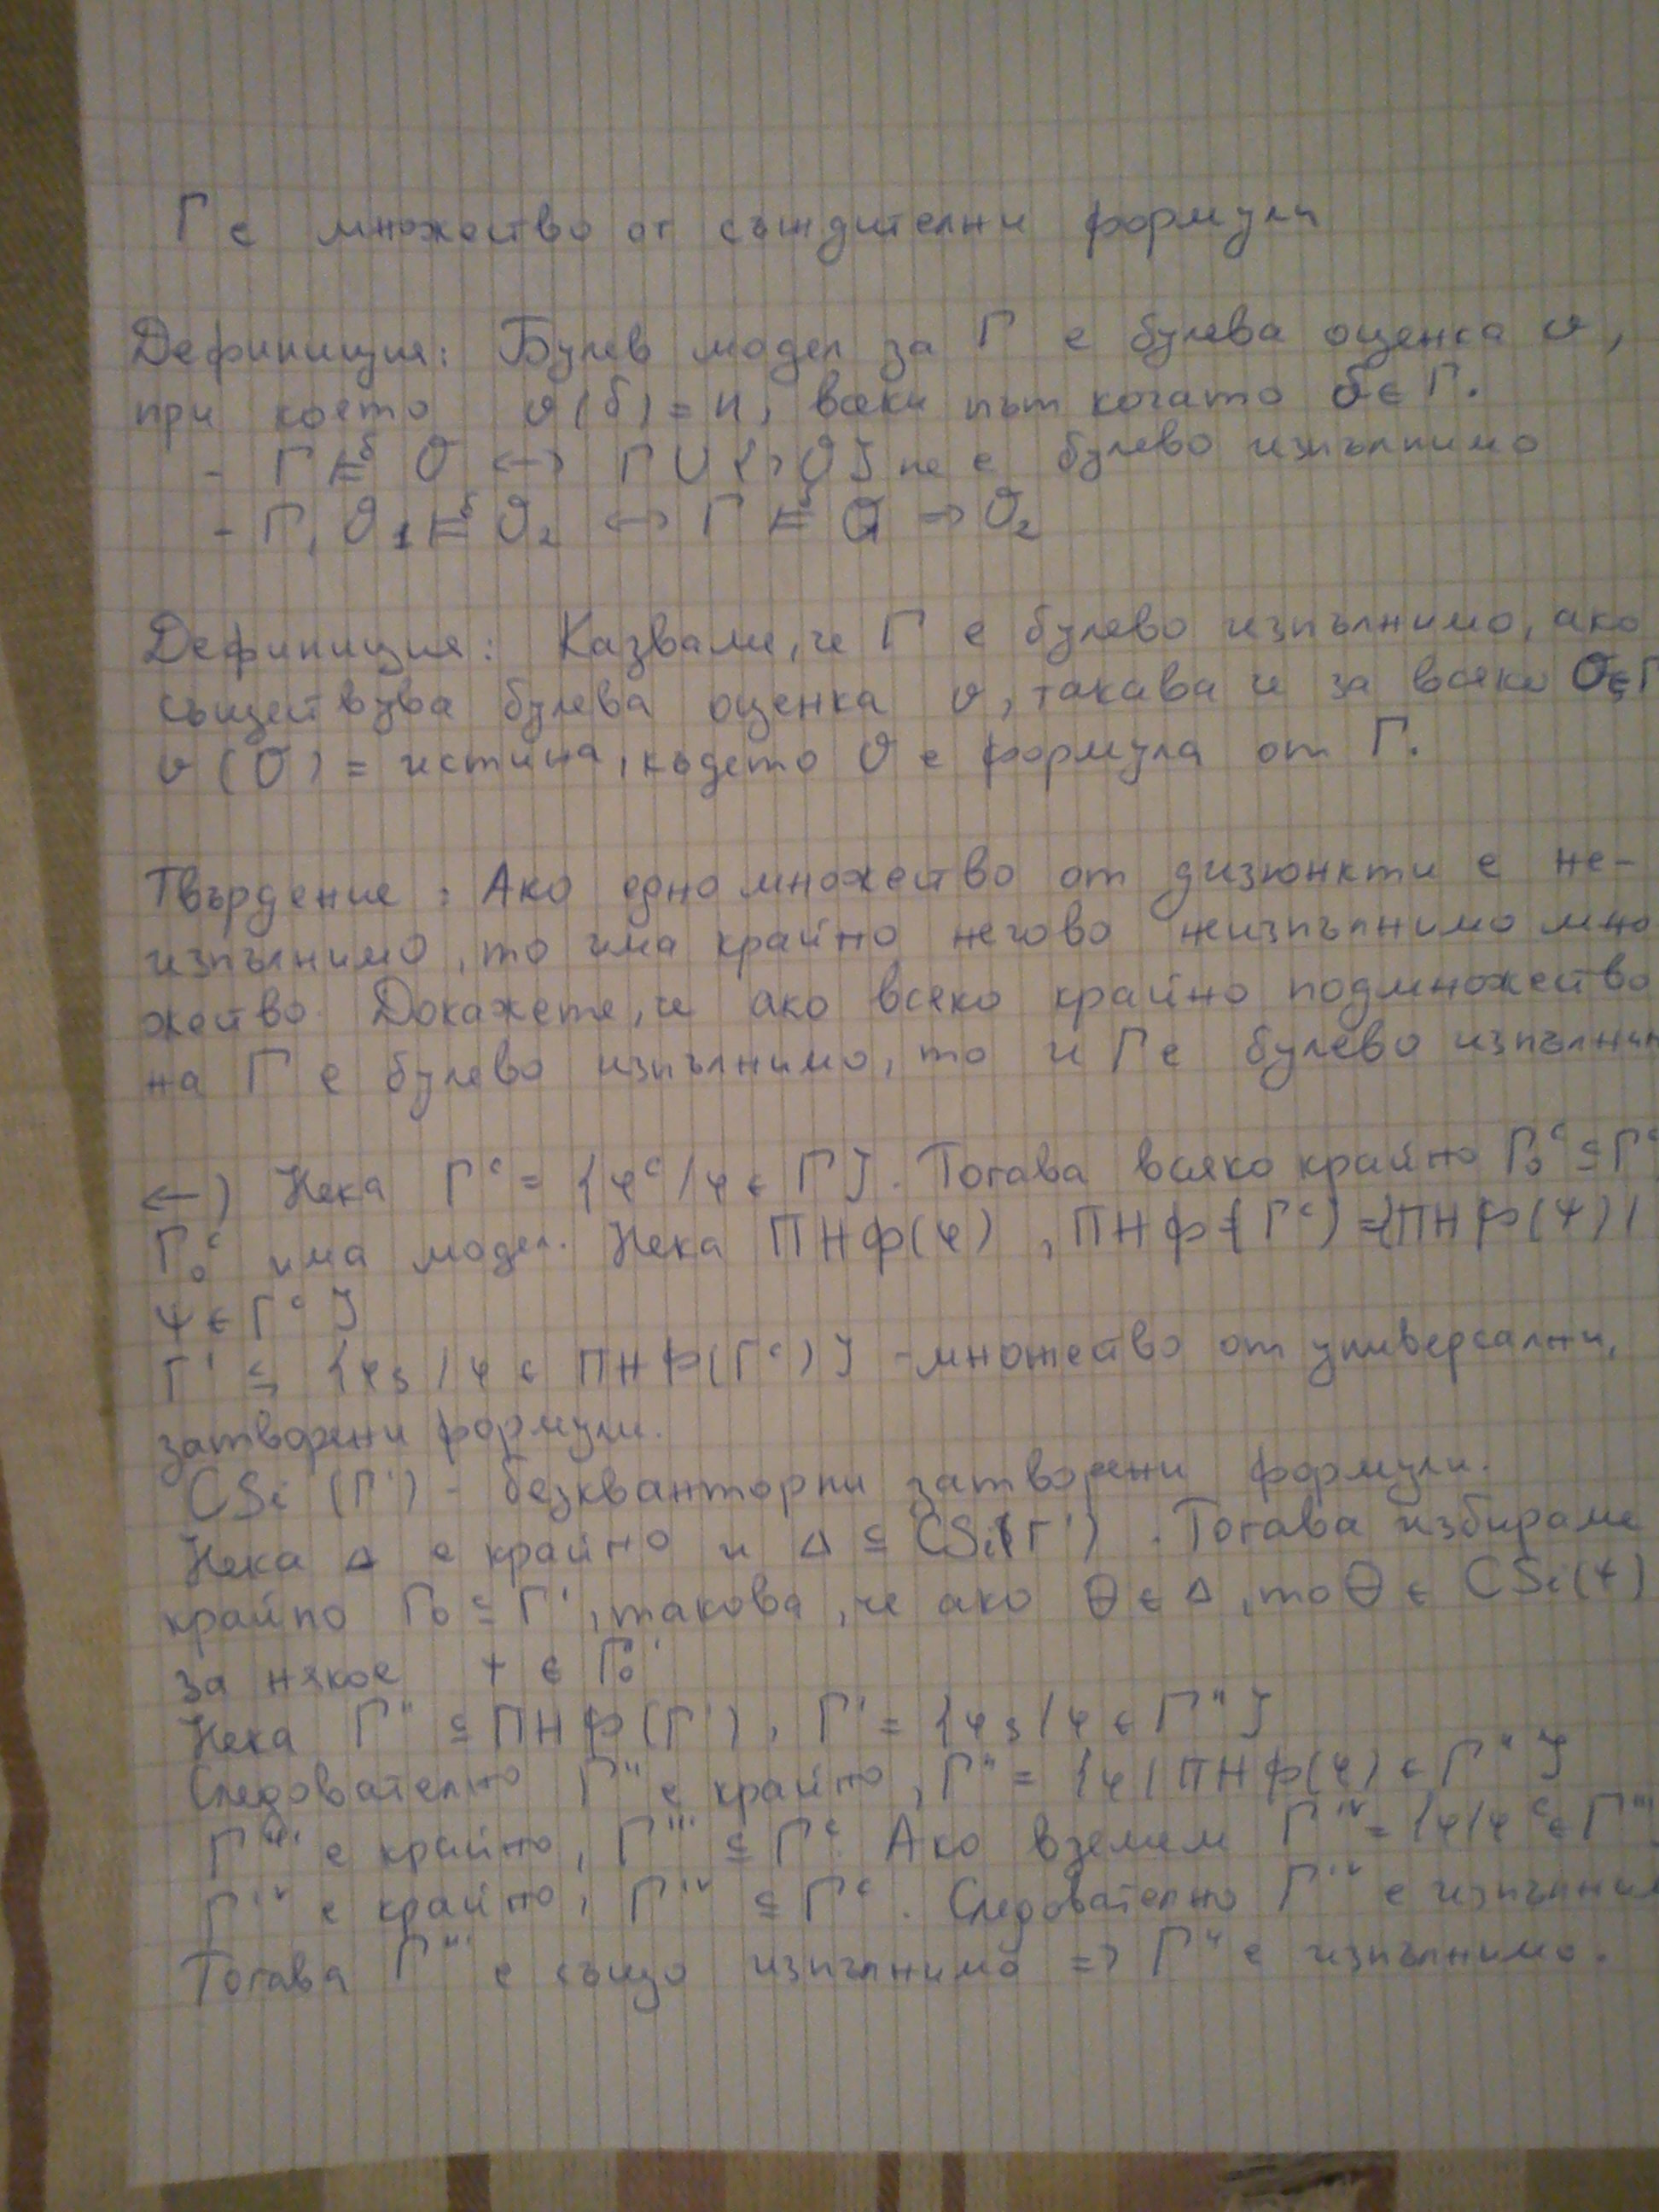 Г е множество от съждителни формули
Дефиниция: Булев модел за Г е булева оценка υ,
при която υ(б) = и, всеки път когато б ∈ Г.
- Г ⊨ᵇ ϑ ↔ Г ∪ {¬ϑ} не е булево изпълнимо
- Г, ϑ₁ ⊨ᵇ ϑ₂ ↔ Г ⊨ᵇ ϑ₁ ⇒ ϑ₂
Дефиниция: Казваме, че Г е булево изпълнимо, ако
съществува булева оценка υ, такава че за всяко ϑ ∈ Г
υ(ϑ) = истина, където ϑ е формула от Г.
Твърдение: Ако едно множество от дизюнкти е не-
изпълнимо, то има крайно негово неизпълнимо мно
жество. Докажете, че ако всяко крайно подмножество
на Г е булево изпълнимо, то и Г е булево изпълним
←) Нека Гᶜ = {φᶜ/φ ∈ Г}. Тогава всяко крайно Г₀ᶜ ⊆ Гᶜ
Г₀ᶜ има модел. Нека ПНФ(φ), ПНФ(Гᶜ) = {ПНФ(ψ)/
ψ ∈ Гᶜ}
Г' ⊆ {φₛ/φ ∈ ПНФ(Гᶜ)} - множество от универсални,
затворени формули.
CSi (Г') - безкванторни затворени формули.
Нека Δ е крайно и Δ ⊆ CSi(Г'). Тогава избираме
крайно Г₀ ⊆ Г', такова, че ако θ ∈ Δ, то θ ∈ CSi(ψ)
за някое ψ ∈ Г₀'
Нека Г'' ⊆ ПНФ(Г'), Г' = {φₛ/φ ∈ Г''}
Следователно Г'' е крайно, Г'' = {φ/ПНФ(φ) ∈ Г''}
Г''' е крайно, Г''' ⊆ Гᶜ. Ако вземем Гᴵⱽ = {φ/φᶜ ∈ Г'''
Гᴵⱽ е крайно, Гᴵⱽ ⊆ Гᶜ. Следователно Гᴵⱽ е изпълним
Тогава Г''' е също изпълнимо => Г'' е изпълнимо.